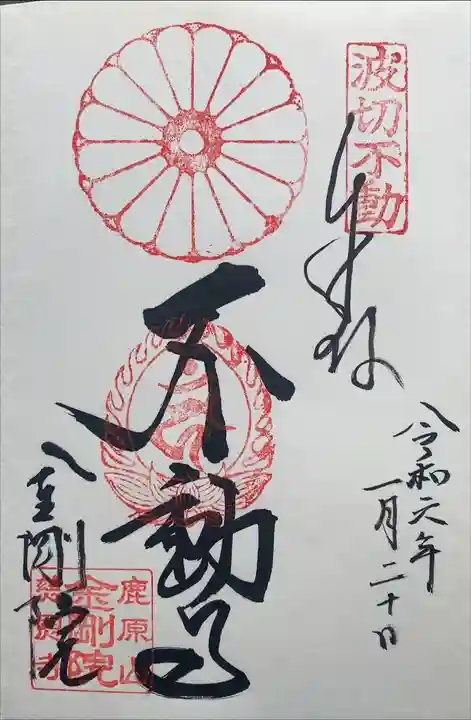 波切不動
奉拝
令和六年
一月二十日
不動尊
金剛院
鹿原山
金剛院
慈恩寺